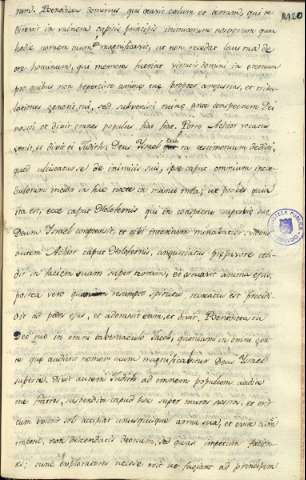 tuus. Benedictus dominus qui creavit cælum et terram, qui te
direxit in vulnera capitis principis inimicorum nostrorum quia
hodie nomen tuum magnificavit, ut non recedat laus tua de
ore hominum, qui memores fuerint virtutis domini in eternum
pro quibus non pepercisti animæ tuæ propter angustias, et tribu
lationes generis tui, sed subvenisti ruinæ ante conspectum Dei
nostri et dixit omnis populus fiat fiat. Porro Achior vocatus
venit, et dixit ei Judith. Deus Israel cui tu testimonium dedisti,
quod ulciscatur se de inimicis suis, ipse caput omnium incre
dulorum incidit in hac nocte in manu mea, ut probes quia
ita est, ecce caput Holofernis qui in contemptu superbiæ suæ
Deum Israel contempsit, et tibi interitum minabatur. videns
autem Achior caput Holofernis, angustiatus præ pavore ceci
dit in faciem suam super terram, et æstuavit anima eius,
postea vero resumpto spiritu recreatus est procidit
ad pedes eius, et adoravit eam, et dixit, Benedicta tu
Deo tuo in omni tabernaculo Jacob, quoniam in omni gen
te que audierit nomen tuum magnificabitur Deus Israel
super te. Dixit autem Judith ad omnem populum audite
me fratres, suspendite caput hoc super muros nostros, et erit
cum exierit sol accipiat unusquisque arma sua, et exite cum
impetu, non descendatis deorsum, sed quasi impetum facien
tes; tunc exploratores necesse erit ut fugiant ad principem